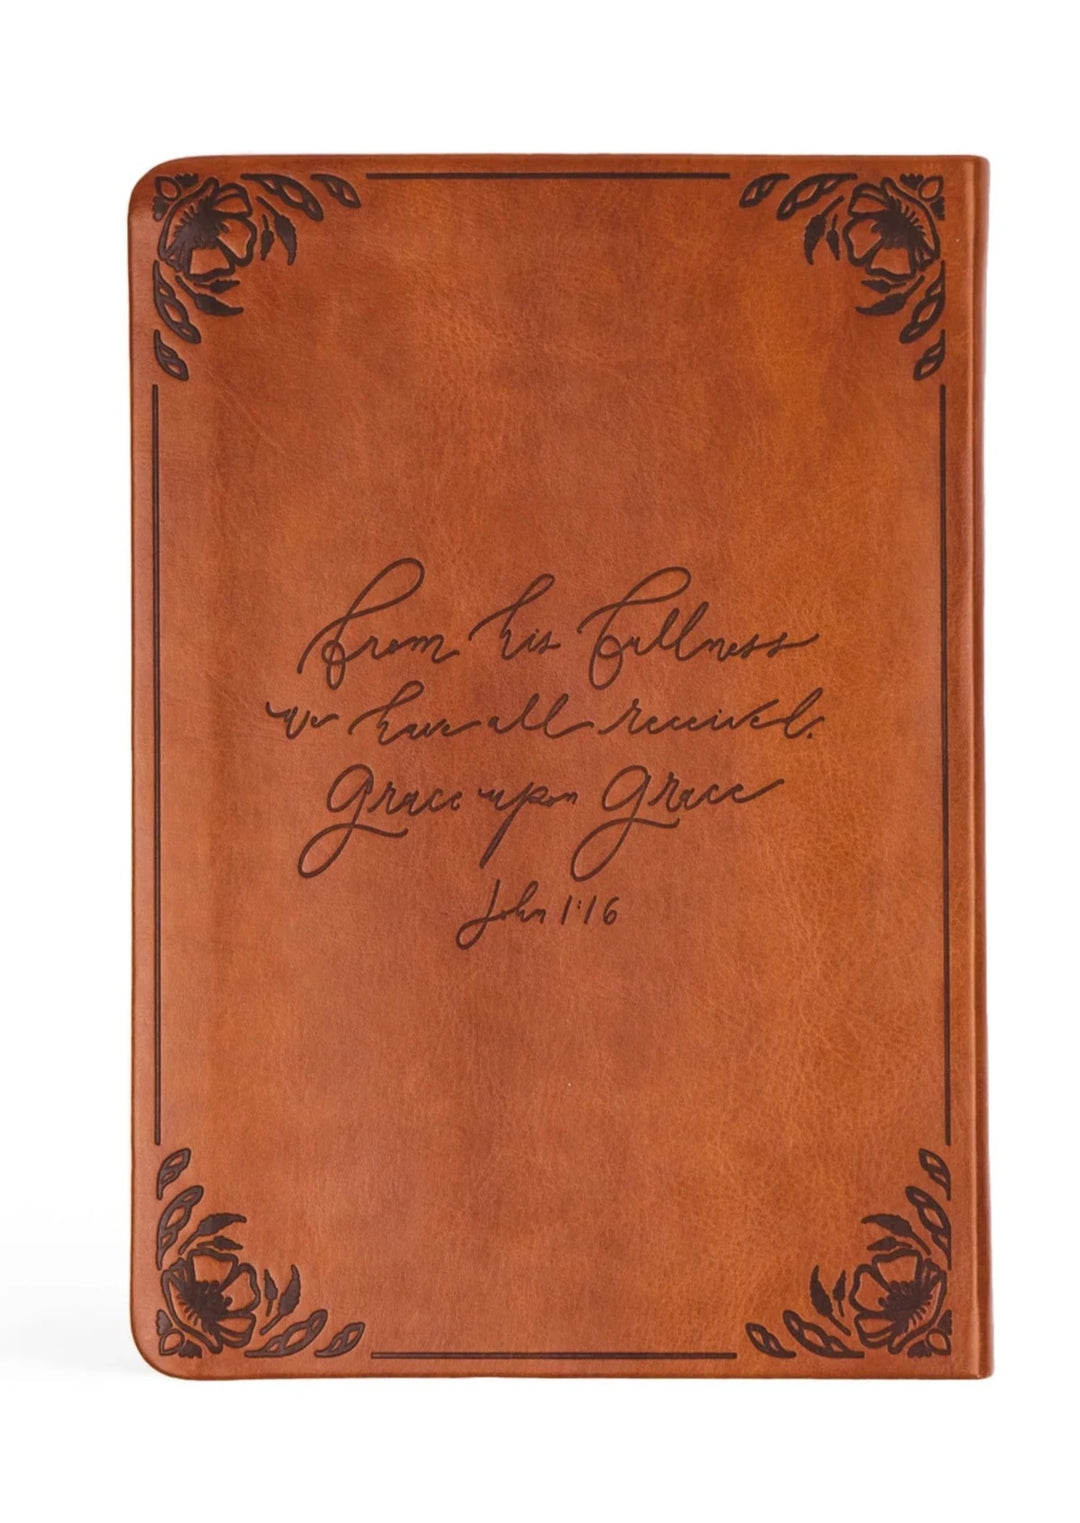 from his fullness
we have all received.
Grace upon Grace
John 1:16